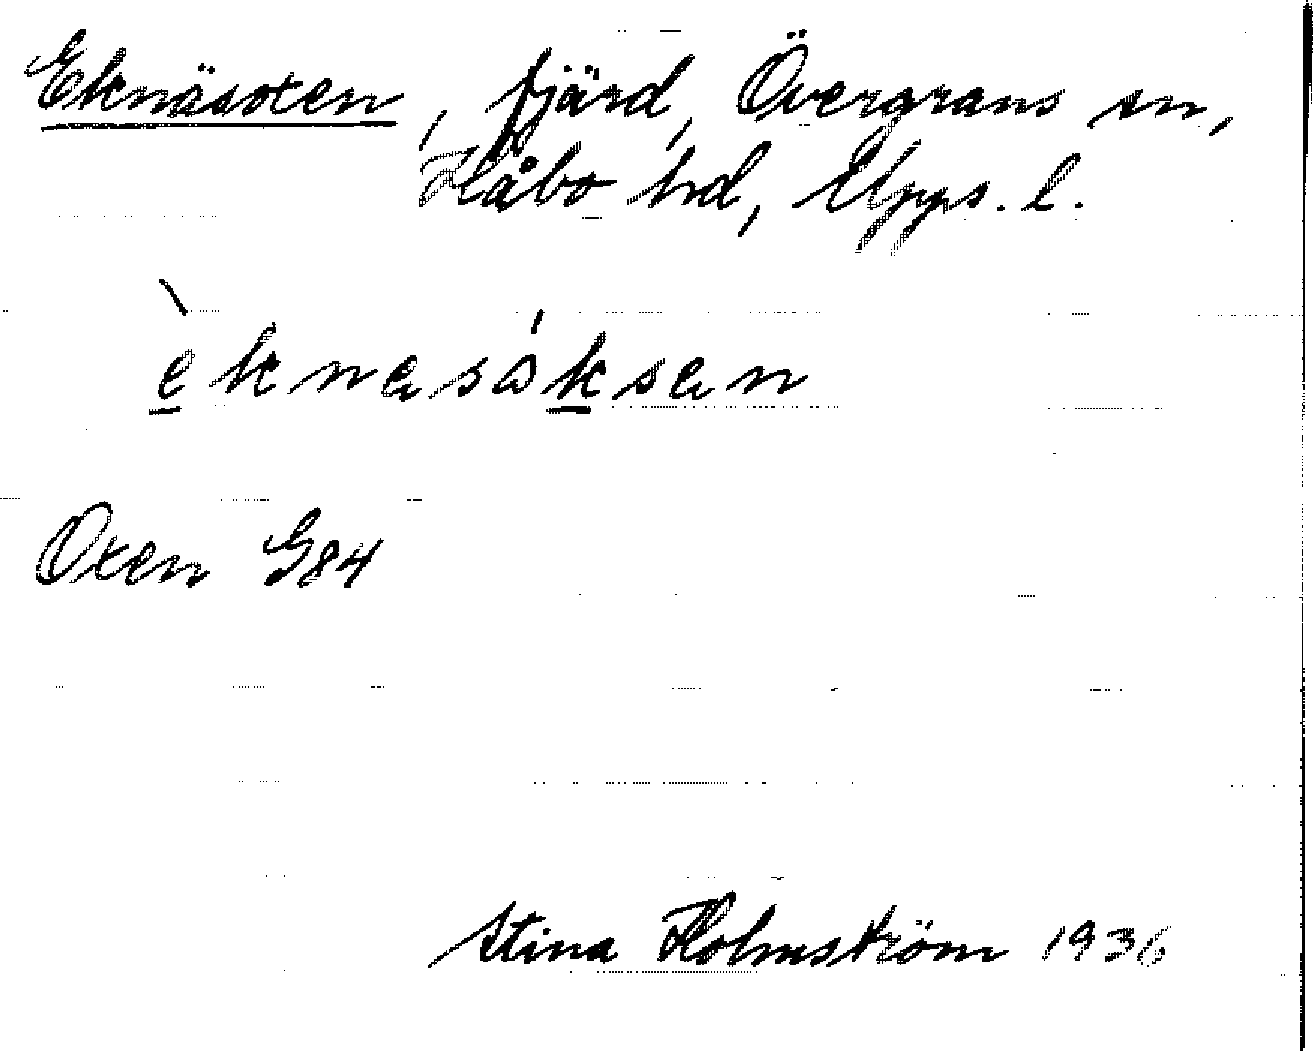 Eknäsoxen, fjärd, Övergrans sn,
Håbo hd, Upps. l.
èknasóksan
Oxen G84
Stina Holmström 1936